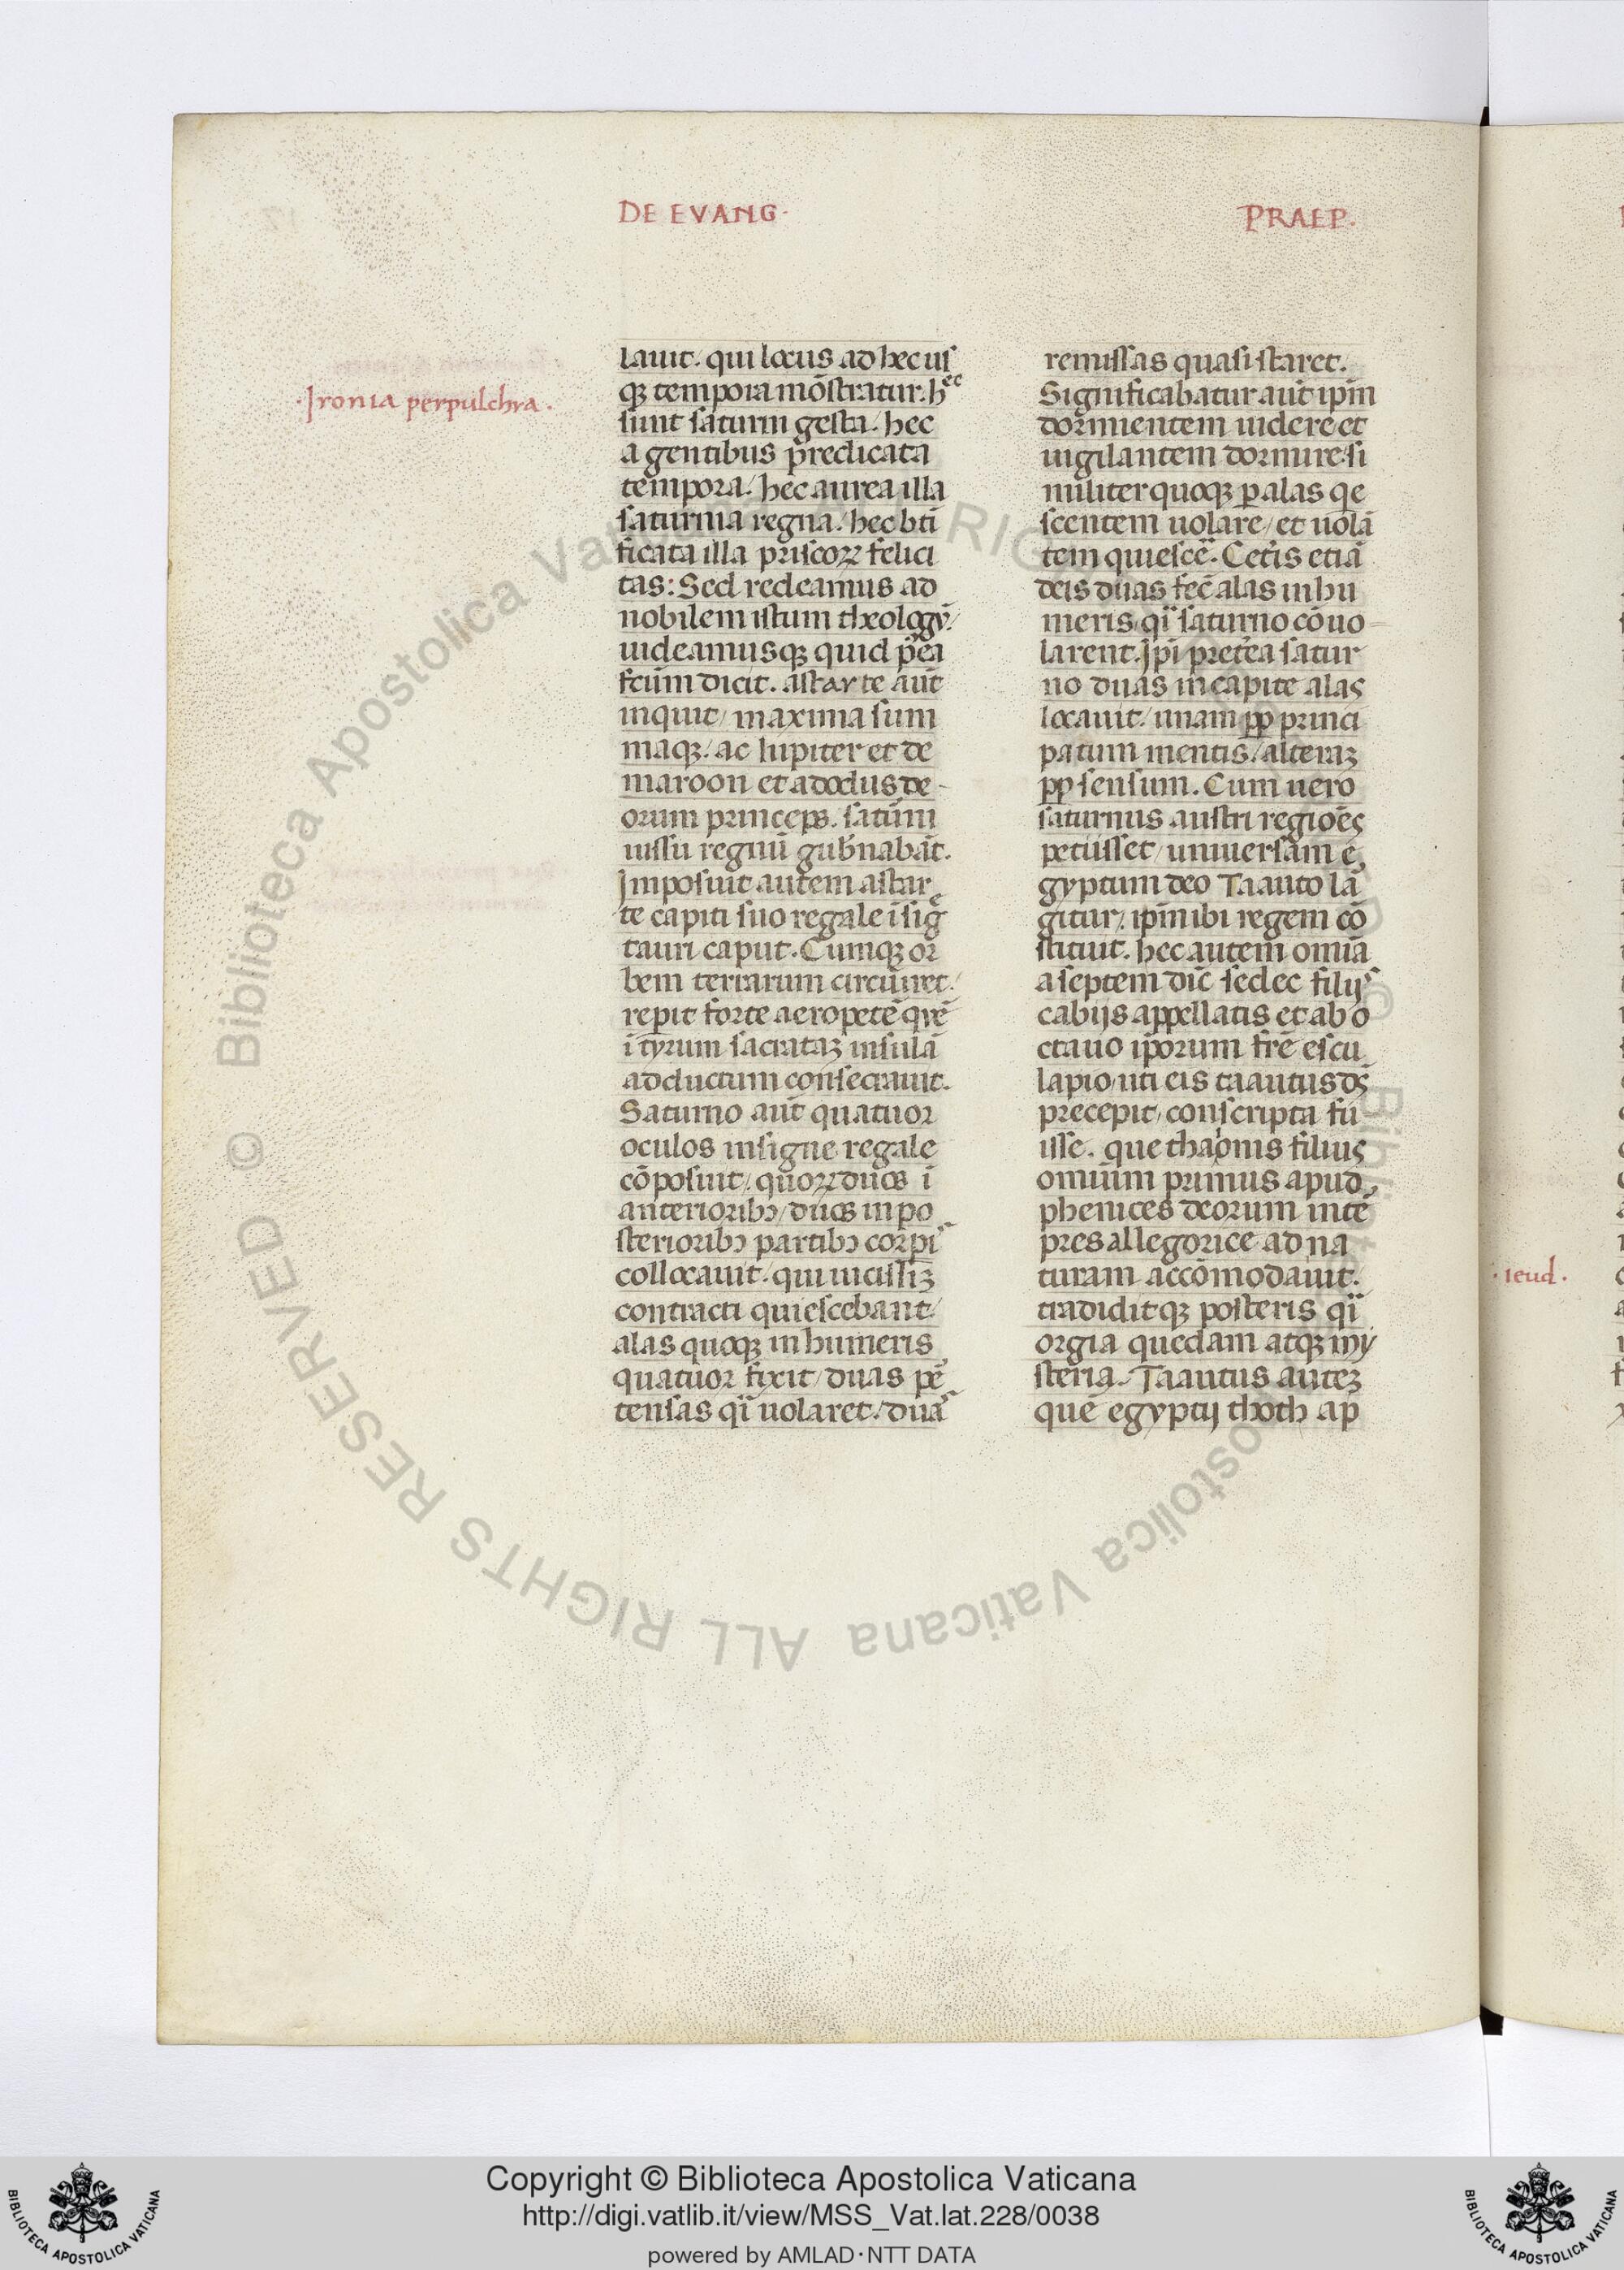 DE EVANG·
PRAEP·
·Ironia perpulchra·
lauit. qui locus ad hec uſ
qꝫ tempora mōſtratur. hec
ſunt ſaturni geſta. hec
a gentibus predicata
tempora. hec aurea illa
ſaturnia regna. hec btī
ficata illa priſcoꝝ felici
tas: Sed redeamus ad
nobilem iſtum theologū.
uideamuſqꝫ quid p̄ea
fcūm dicit. aſtarte aūt
inquit maxima ſum
maqꝫ. ac Iupiter et de
maroon et adodus de-
orum princeps. ſatūni
iuſſu regnū gub̄nabāt.
Impoſuit autem aſtar
te capiti ſuo regale iſigē
tauri caput. Cumqꝫ or
bem terrarum circūiret.
repit forte aeropetē quē
ī tyrum ſacrataꝫ inſulā
adductum conſecrauit.
Saturno aūt quatuor
oculos inſigne regale
cōpoſuit. quoꝝ duos ī
anterioribꝰ duos in po
ſterioribꝰ partibꝰ corpis
collocauit. qui uiciſſiꝫ
contracti quieſcebant
alas quoqꝫ in humeris
quatuor fixit duas pē
tenſas qī uolaret. duas
remiſſas quaſi ſtaret.
Significabatur aūt ipm̄
dormientem uidere et
uigilantem dormire. ſi
militer quoqꝫ ꝑ alas qe
ſcentem uolare, et uolā
tem quieſcē. Cet̄is etiā
deis duas fec̄ alas in hu
meris qī ſaturno cōuo
larent. Ipī pret̄ea ſatur
no duas in capite alas
locauit. unam pp̄ princi
patum mentis. alteraꝫ
pp̄ ſenſum. Cum uero
ſaturnus auſtri regiōes
petiiſſet uniuerſam e
gyptum deo Taauto lā
gitur. ipm̄ ibi regem cō
ſtituit. hec autem omīa
a ſeptem dic̄ ſedec filijs
cabijs appellatis et ab o
ctauo ip̄orum fr̄e eſcu
lapio uti eis taautus dꝫ
precepit conſcripta fu
iſſe. que thaonis filius
omīum primus apud
phenices deorum inte
pres allegorice ad na
turam accōmodauit.
tradiditqꝫ poſteris qī
orgia quedam atqꝫ my
ſteria. Taautus auteꝫ
quē egyptij thoth ap
·ieud·
Copyright © Biblioteca Apostolica Vaticana
http://digi.vatlib.it/view/MSS_Vat.lat.228/0038
powered by AMLAD·NTT DATA
BIBLIOTECA APOSTOLICA VATICANA
BIBLIOTECA APOSTOLICA VATICANA
© Biblioteca Apostolica Vaticana ALL RIGHTS RESERVED